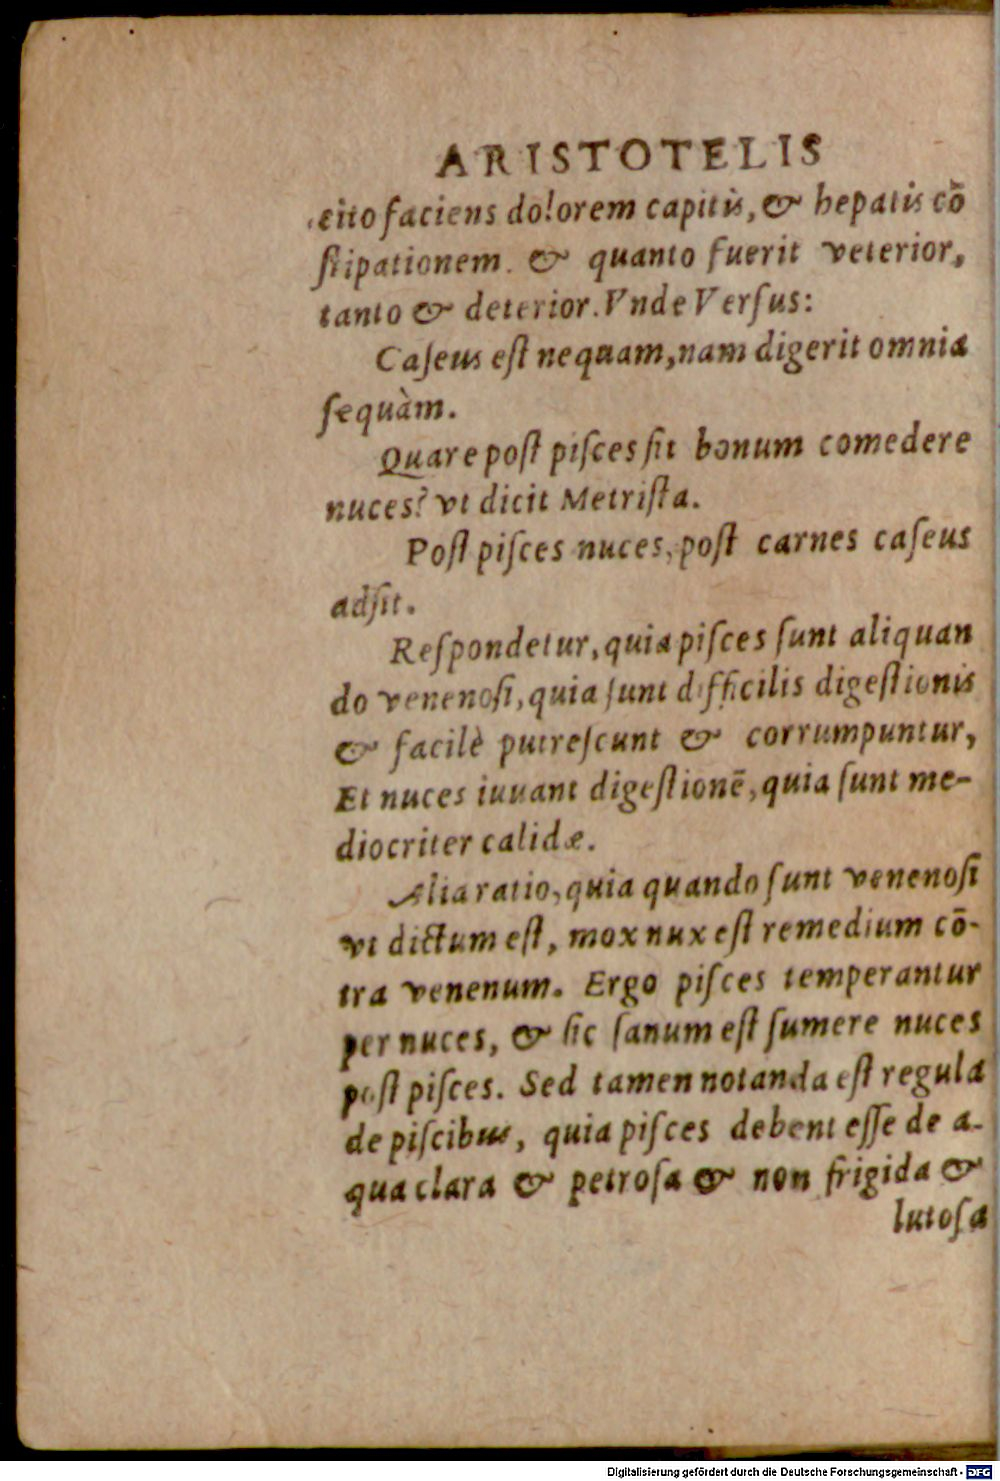 ARISTOTELIS
cito faciens dolorem capitis, & hepatis cō
ſtipationem. & quanto fuerit veterior,
tanto & deterior. Vnde Verſus:
Caſeus eſt nequam, nam digerit omnia
ſequàm.
Quare poſt piſces ſit bonum comedere
nuces? vt dicit Metriſta.
Poſt piſces nuces, poſt carnes caſeus
adſit.
Reſpondetur, quia piſces ſunt aliquan
do venenoſi, quia ſunt difficilis digeſtionis
& facilè putreſcunt & corrumpuntur,
Et nuces iuuant digeſtionē, quia ſunt me-
diocriter calidæ.
Alia ratio, quia quando ſunt venenoſi
vt dictum eſt, mox nux eſt remedium cō-
tra venenum. Ergo piſces temperantur
per nuces, & ſic ſanum eſt ſumere nuces
poſt piſces. Sed tamen notanda eſt regula
de piſcibus, quia piſces debent eſſe de a-
qua clara & petroſa & non frigida &
lutoſa
Digitalisierung gefördert durch die Deutsche Forschungsgemeinschaft - DFG